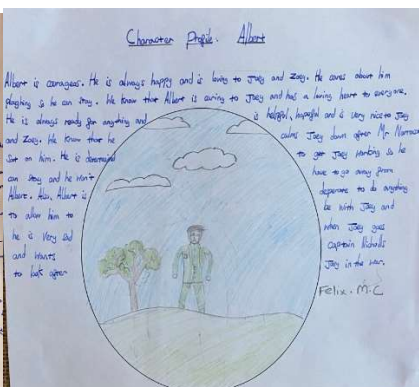 Character Profile. Albert
Albert is courageous. He is always happy and is loving to Joey and Zoey. He cares about him
ploghing so he can stay. We know that Albert is caring to Joey and has a loving heart to everyone.
He is always ready for anything and is helpful, hopeful and is very nice to Joey
and Zoey. We know that he calms Joey down after Mr
Sat on him. He is determined to get Joey working so he
can stay and he won't have to go away from
Albert. Also, Albert is desperate to do anything
to allow him to be with Joey and
he is very sad when Joey goes
and wants captain Nicholls
to look after Joey in the war.
Felix. M.C